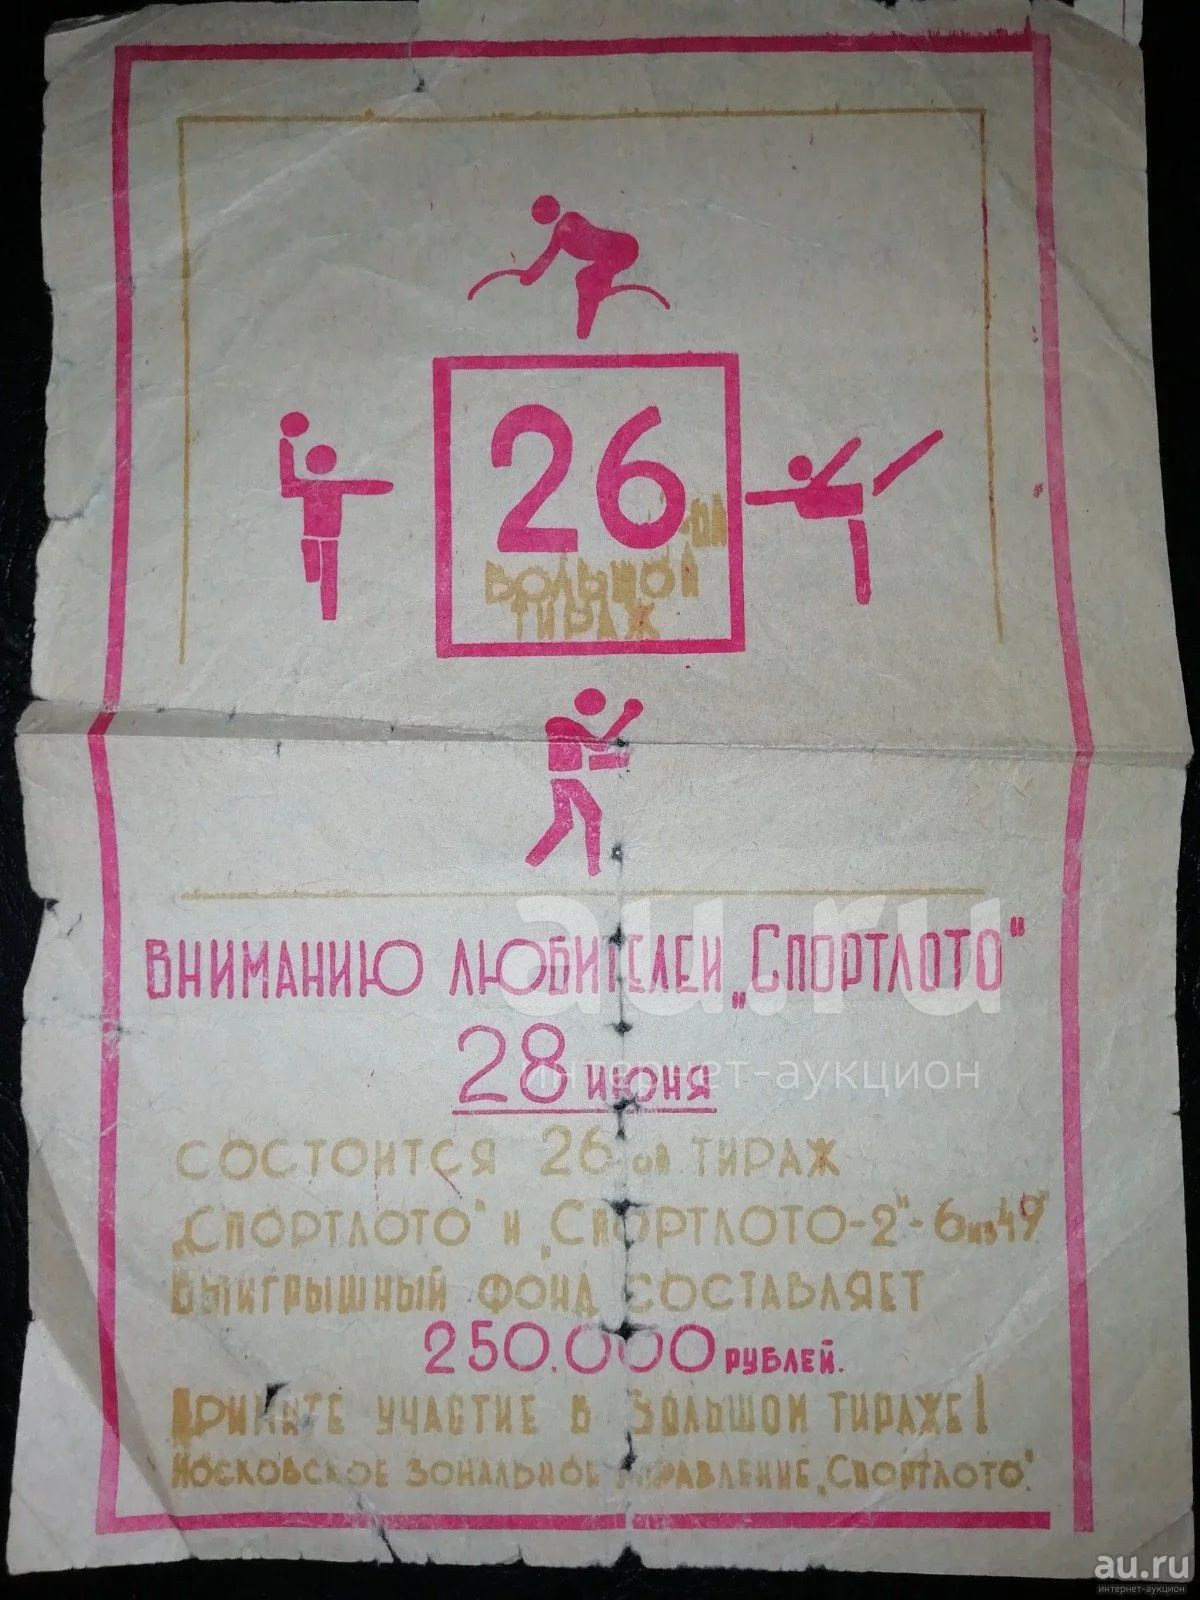 26-ЫЙ
БОЛЬШОЙ
ТИРАЖ
ВНИМАНИЮ ЛЮБИТЕЛЕЙ „СПОРТЛОТО"
28 ИЮНЯ
СОСТОИТСЯ 26-ОЙ ТИРАЖ
„СПОРТЛОТО" И „СПОРТЛОТО-2"-6 ИЗ 49"
ВЫИГРЫШНЫЙ ФОНД СОСТАВЛЯЕТ
250.000 РУБЛЕЙ.
ПРИМИТЕ УЧАСТИЕ В БОЛЬШОМ ТИРАЖЕ!
МОСКОВСКОЕ ЗОНАЛЬНОЕ УПРАВЛЕНИЕ „СПОРТЛОТО".
au.ru
интернет-аукцион
au.ru
интернет-аукцион